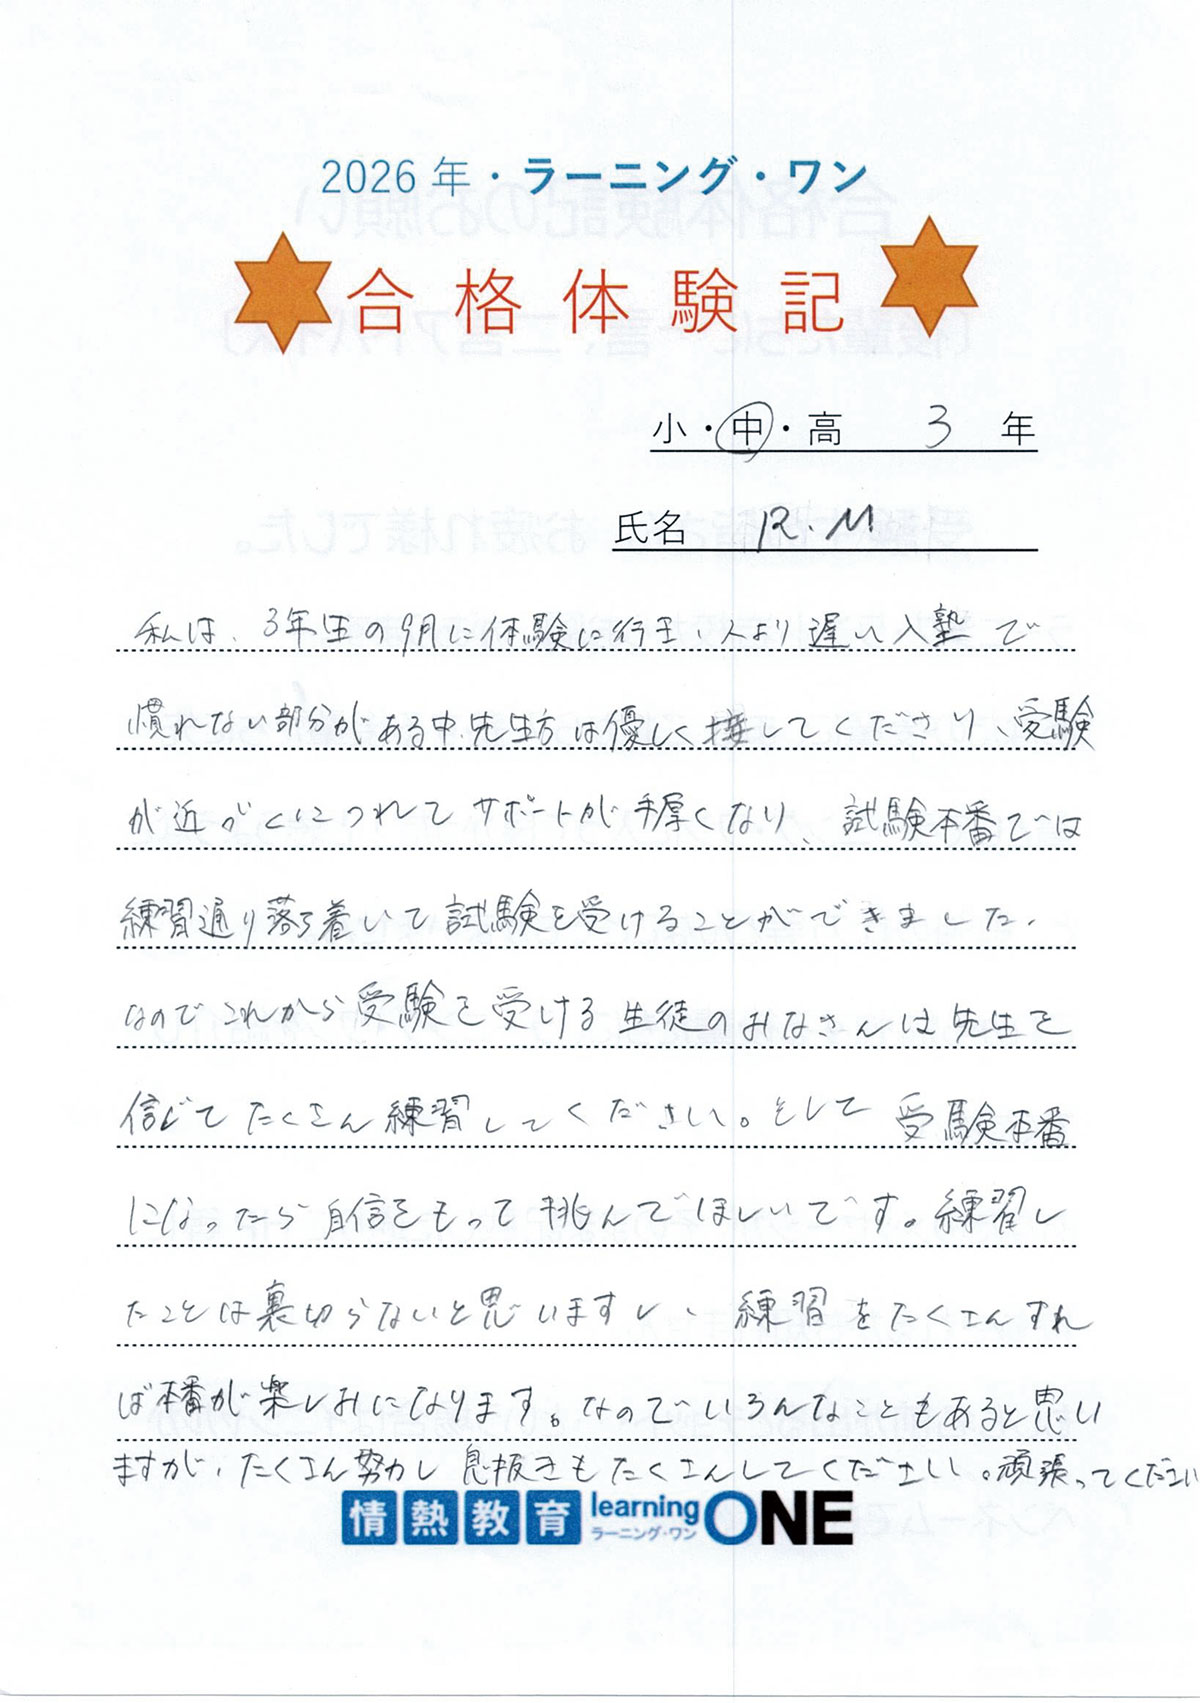 2026年・ラーニング・ワン
合格体験記
小・中・高 3 年
氏名 R.M
私は、3年生の9月に体験に行き、人より遅い入塾で
慣れない部分がある中、先生方は優しく接してくださり、受験
が近づくにつれてサポートが手厚くなり、試験本番では
練習通り落ち着いて試験を受けることができました。
なのでこれから受験を受ける生徒のみなさんは先生を
信じてたくさん練習してください。そして受験本番
になったら自信をもって挑んでほしいです。練習し
たことは裏切らないと思いますし、練習をたくさんすれ
ば本番が楽しみになります。なのでいろんなこともあると思い
ますが、たくさん努力し息抜きもたくさんしてください。頑張ってください
情熱教育 learning ONE
ラーニング・ワン